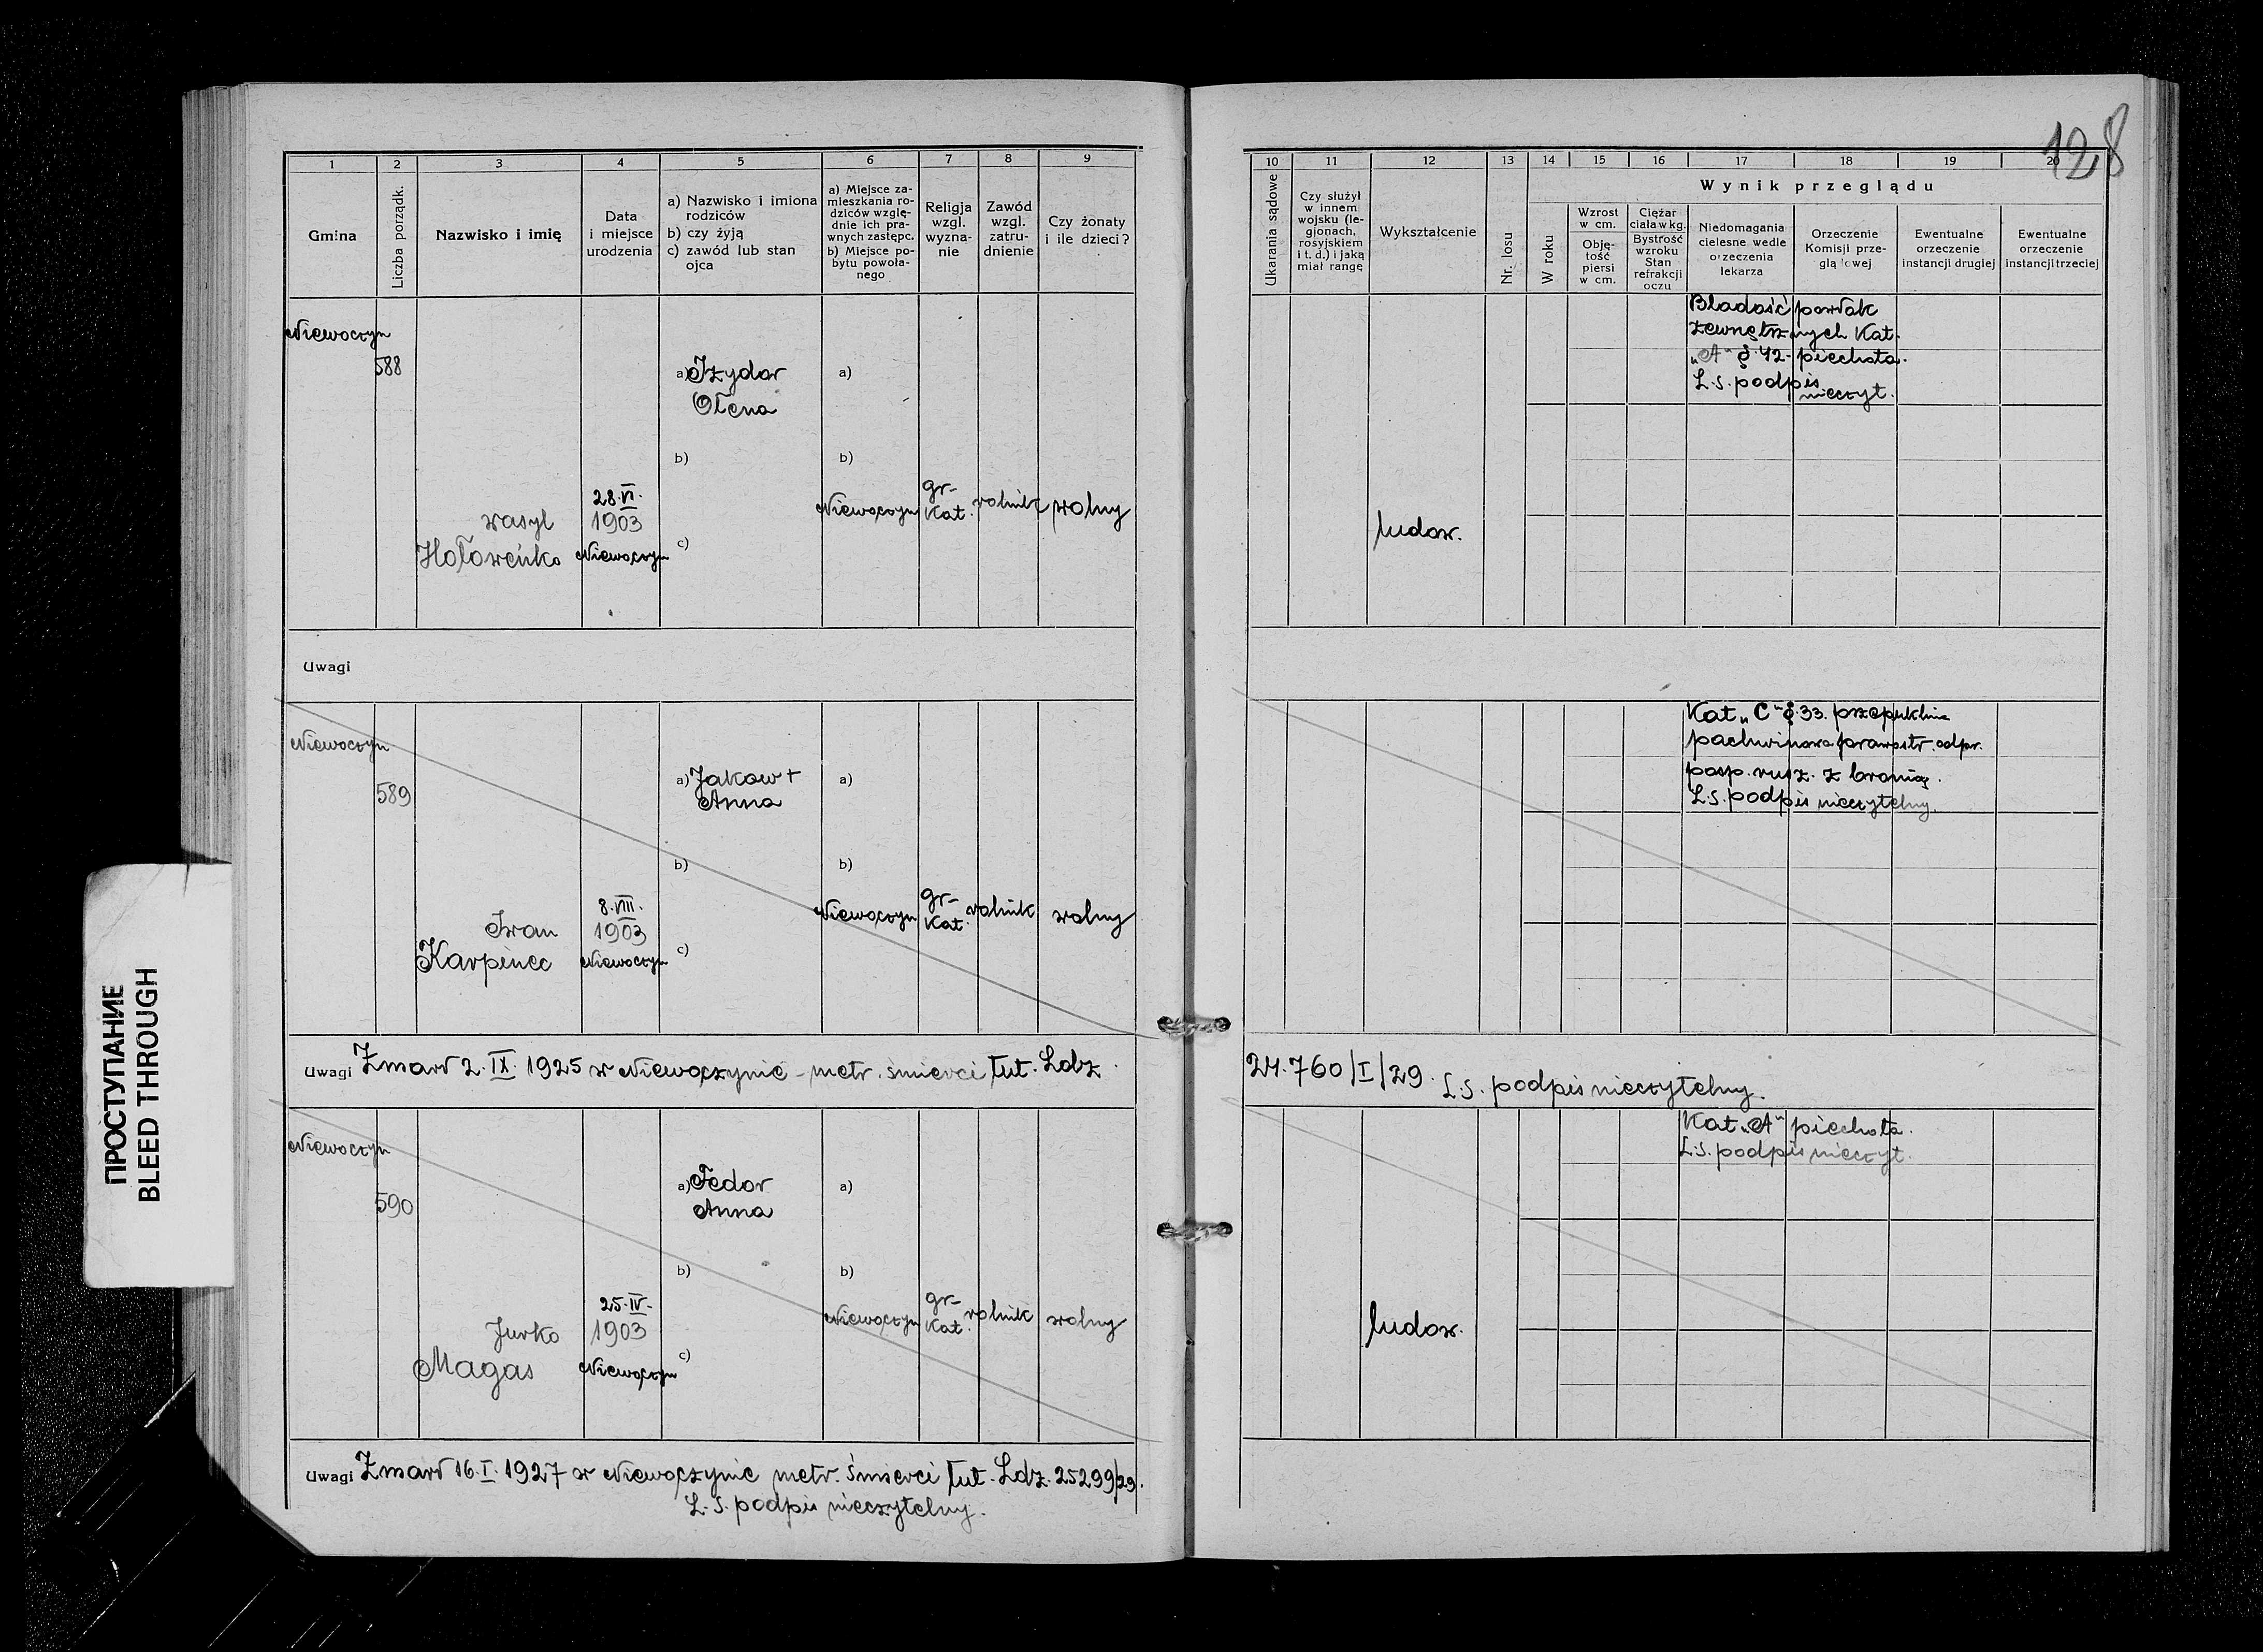 128
1 2 3 4 5 6 7 8 9
Gmina
Liczba porządk.
Nazwisko i imię
Data
i miejsce
urodzenia
a) Nazwisko i imiona
rodziców
b) czy żyją
c) zawód lub stan
ojca
a) Miejsce za-
mieszkania ro-
dziców wzglę-
dnie ich pra-
wnych zastępc.
b) Miejsce po-
bytu powoła-
nego
Religja
wzgl.
wyzna-
nie
Zawód
wzgl.
zatru-
dnienie
Czy żonaty
i ile dzieci?
10 11 12 13 14 15 16 17 18 19 20
Ukarania sądowe
Czy służył
w innem
wojsku (le-
gjonach,
rosyjskiem
i t. d.) i jaką
miał rangę
Wykształcenie
Nr. losu
Wynik przeglądu
W roku
Wzrost
w cm.
Obję-
tość
piersi
w cm.
Ciężar
ciała w kg.
Bystrość
wzroku
Stan
refrakcji
oczu
Niedomagania
cielesne wedle
orzeczenia
lekarza
Orzeczenie
Komisji prze-
glądowej
Ewentualne
orzeczenie
instancji drugiej
Ewentualne
orzeczenie
instancji trzeciej
Niewoczyn
588
wasyl
Hołoweńko
28.VI.
1903
Niewoczyn
a) Izydor
Ołena
b)
c)
a)
b)
Niewoczyn
gr-
Kat.
rolnik
wolny
ludow.
Bladość powłok
zewnętrznych Kat.
„A" § 42- piechota.
L.S. podpis
nieczyt.
Uwagi
Niewoczyn
589
Iwan
Karpinec
8.VIII.
1903
Niewoczyn
a) Jakow +
Anna
b)
c)
a)
b)
Niewoczyn
gr-
Kat.
rolnik
wolny
Kat „C" § 33. przepuklina
pachwinowa prawostr. odpr.
posp. rusz. z bronią.
L.S. podpis nieczytelny.
Uwagi Zmarł 2.IX.1925 w Niewoczynie - metr. śmierci tut. Ldz.
24.760/I/29. L.S. podpis nieczytelny.
Niewoczyn
590
Jurko
Magas
25.IV.
1903
Niewoczyn
a) Fedor
Anna
b)
c)
a)
b)
Niewoczyn
gr-
Kat.
rolnik
wolny
ludow.
Kat „A" piechota.
L.S. podpis nieczyt.
Uwagi Zmarł 16.I.1927 w Niewoczynie metr. śmierci tut. Ldz. 25299/29.
L.S. podpis nieczytelny.
ПРОСТУПАНИЕ
BLEED THROUGH